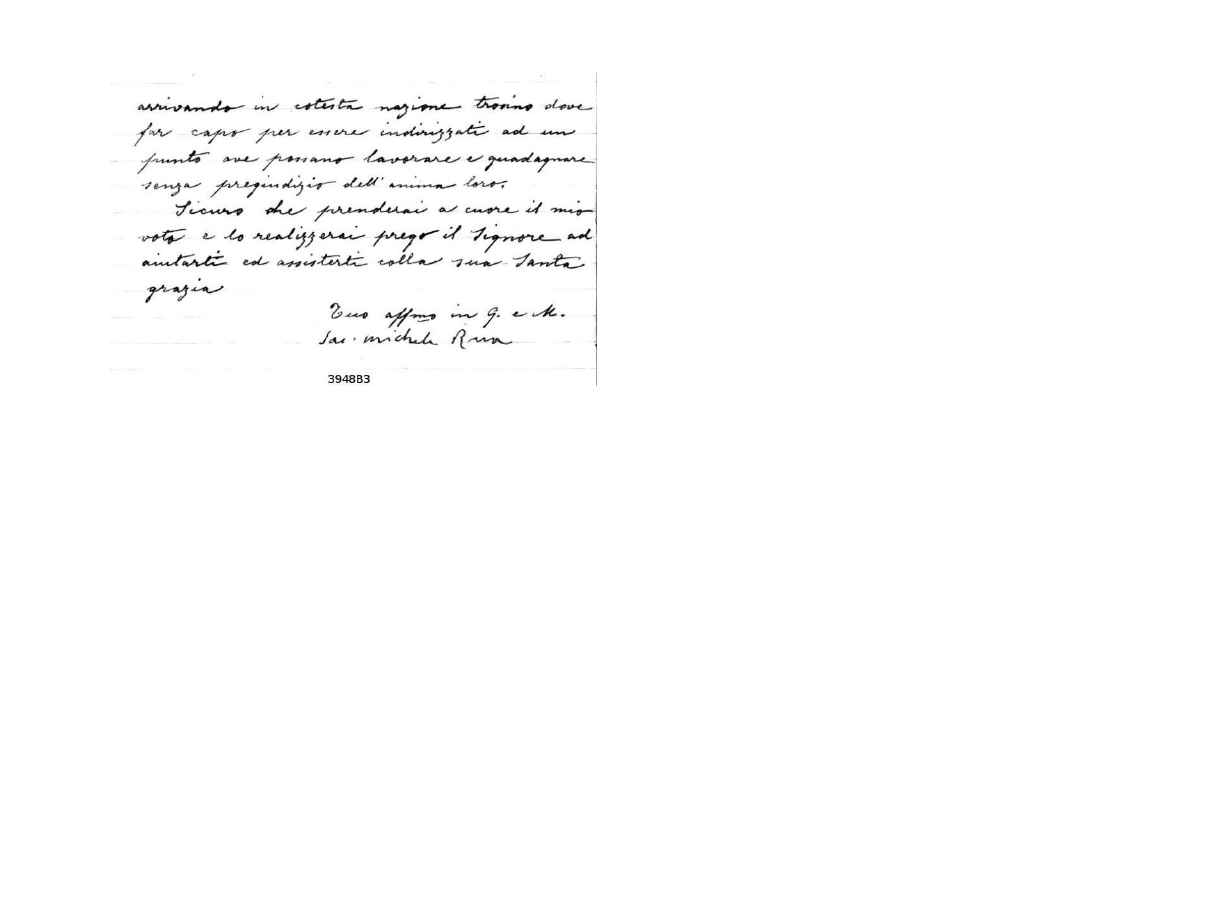 arrivando in cotesta nazione trovino dove
far capo per essere indirizzati ad un
punto ove possano lavorare e guadagnare
senza pregiudizio dell'anima loro.
Sicuro che prenderai a cuore il mio
voto e lo realizzerai prego il Signore ad
aiutarti ed assisterti colla sua Santa
grazia
Tuo affmo in G. e M.
Sac. Michele Rua
3948B3